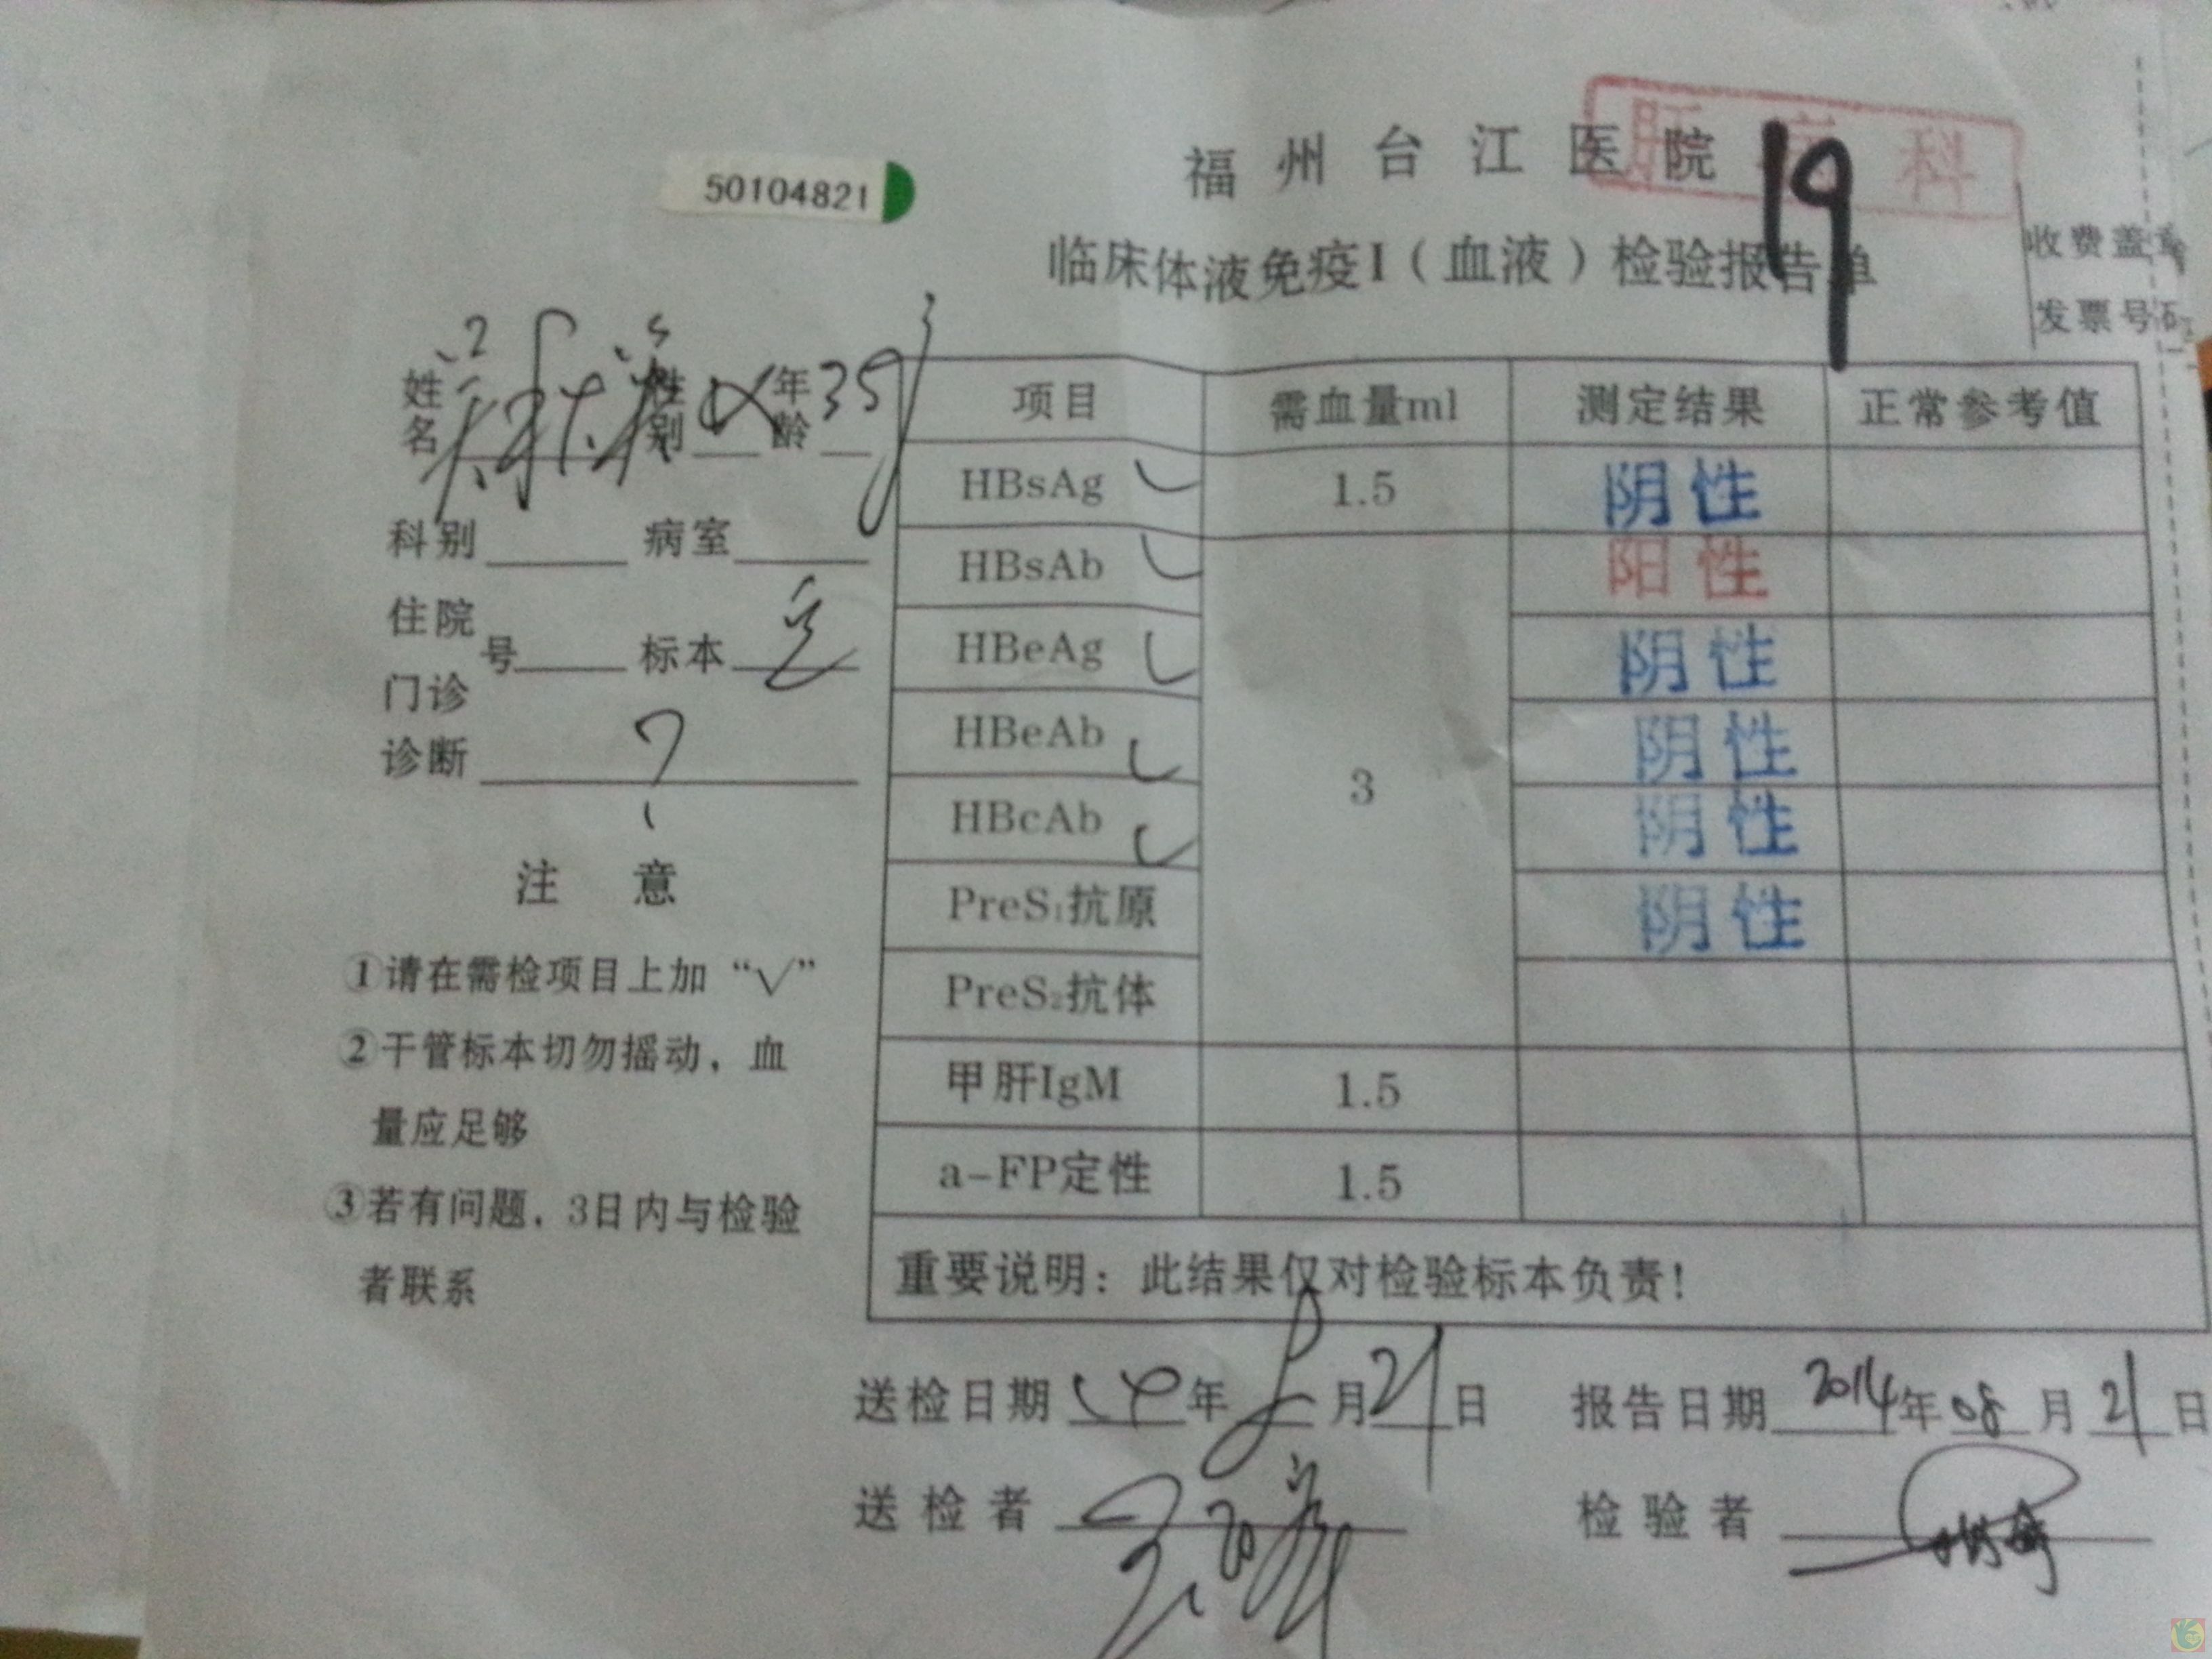 50104821
福州台江医院
科
19
临床体液免疫I（血液）检验报告单
收费盖章
发票号码
姓名 性别 年龄 35
科别 病室
住院
号 标本
门诊
诊断 ?
注 意
①请在需检项目上加“√”
②干管标本切勿摇动，血
量应足够
③若有问题，3日内与检验
者联系
项目 需血量ml 测定结果 正常参考值
HBsAg ✓ 1.5 阴性
HBsAb ✓ 阳性
HBeAg ✓ 阴性
HBeAb ✓ 阴性
HBcAb ✓ 3 阴性
PreS₁抗原 阴性
PreS₂抗体
甲肝IgM 1.5
a-FP定性 1.5
重要说明：此结果仅对检验标本负责！
送检日期 14年8月21日 报告日期 2014年08月21日
送检者 检验者